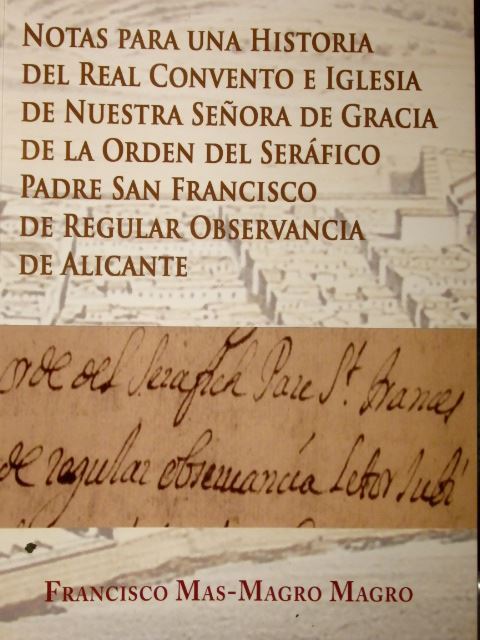 NOTAS PARA UNA HISTORIA
DEL REAL CONVENTO E IGLESIA
DE NUESTRA SEÑORA DE GRACIA
DE LA ORDEN DEL SERÁFICO
PADRE SAN FRANCISCO
DE REGULAR OBSERVANCIA
DE ALICANTE
orde del Serafich Pare St. Frances
de regular observancia Letor Jubi
FRANCISCO MAS-MAGRO MAGRO